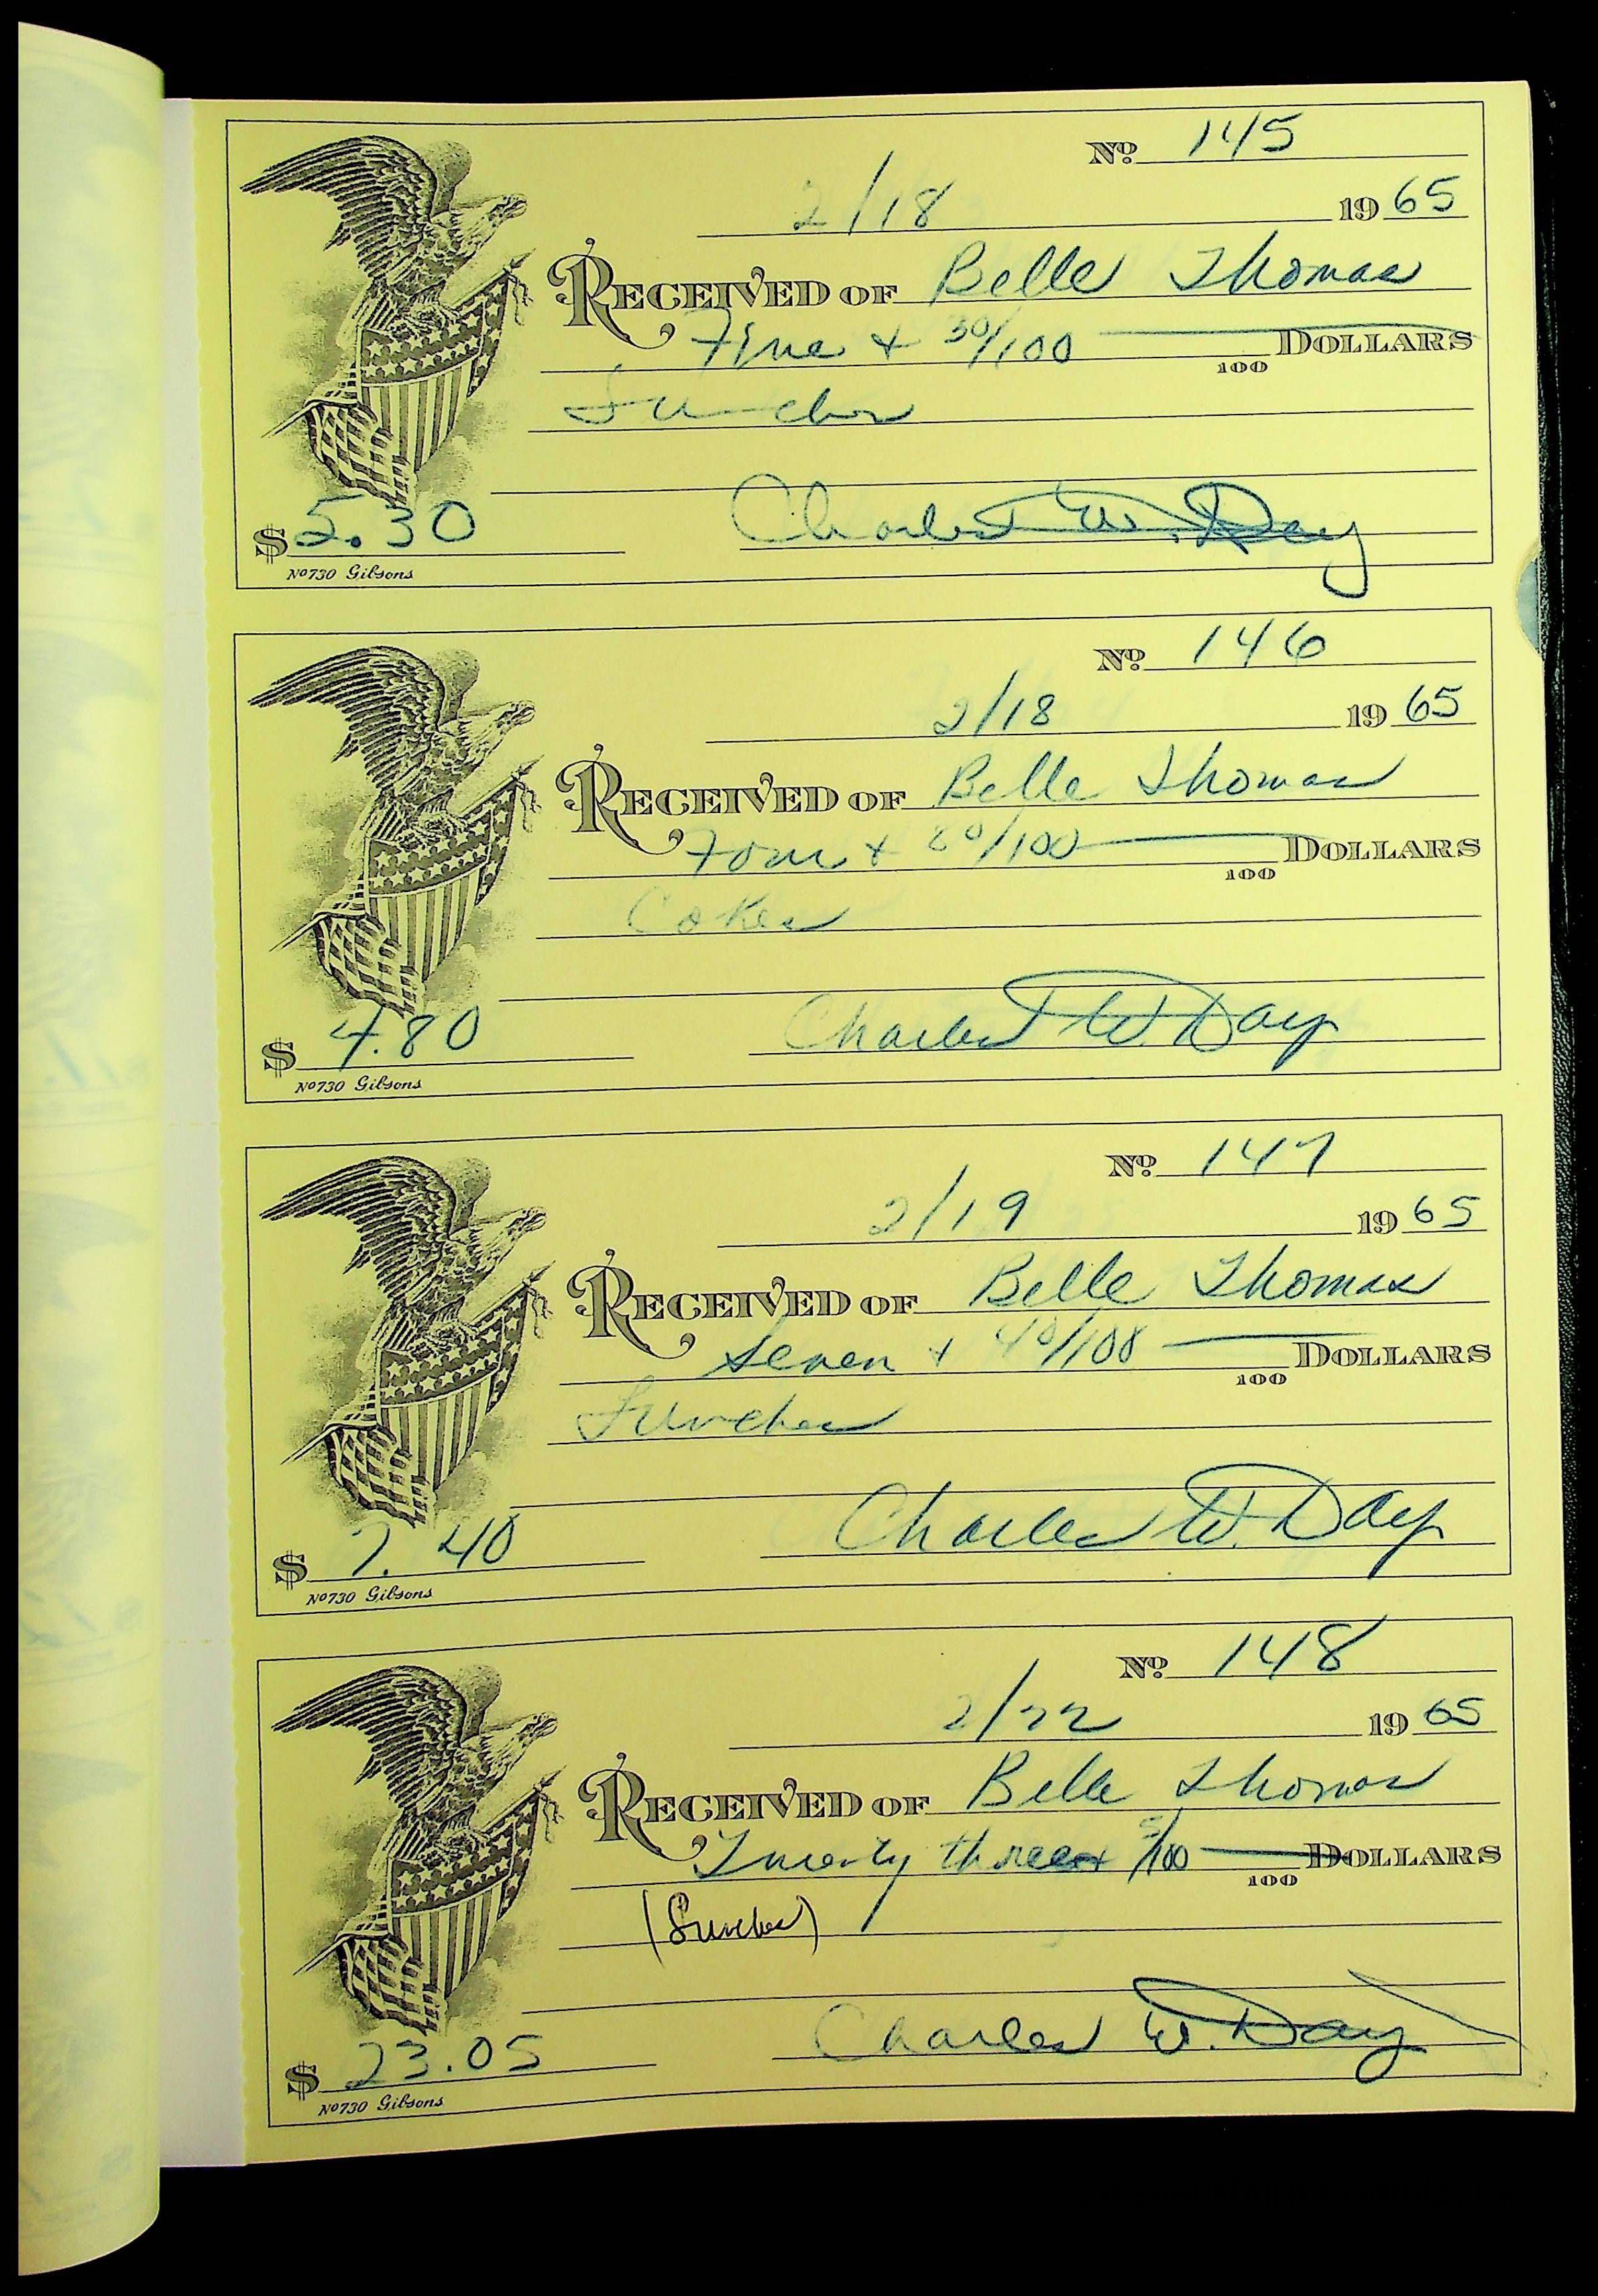 Nº 145
2/18 1965
RECEIVED OF Belle Thomas
Five + 30/100 DOLLARS
100
Lunches
$ 5.30 Charles W. Day
Nº 730 Gibsons
Nº 146
2/18 1965
RECEIVED OF Belle Thomas
Four + 80/100 DOLLARS
100
Cokes
$ 4.80 Charles W. Day
Nº 730 Gibsons
Nº 147
2/19 1965
RECEIVED OF Belle Thomas
Seven + 40/100 DOLLARS
100
Lunches
$ 7.40 Charles W. Day
Nº 730 Gibsons
Nº 148
2/22 1965
RECEIVED OF Belle Thomas
Twenty three + 5/100 DOLLARS
100
(Lunches)
$ 23.05 Charles W. Day
Nº 730 Gibsons